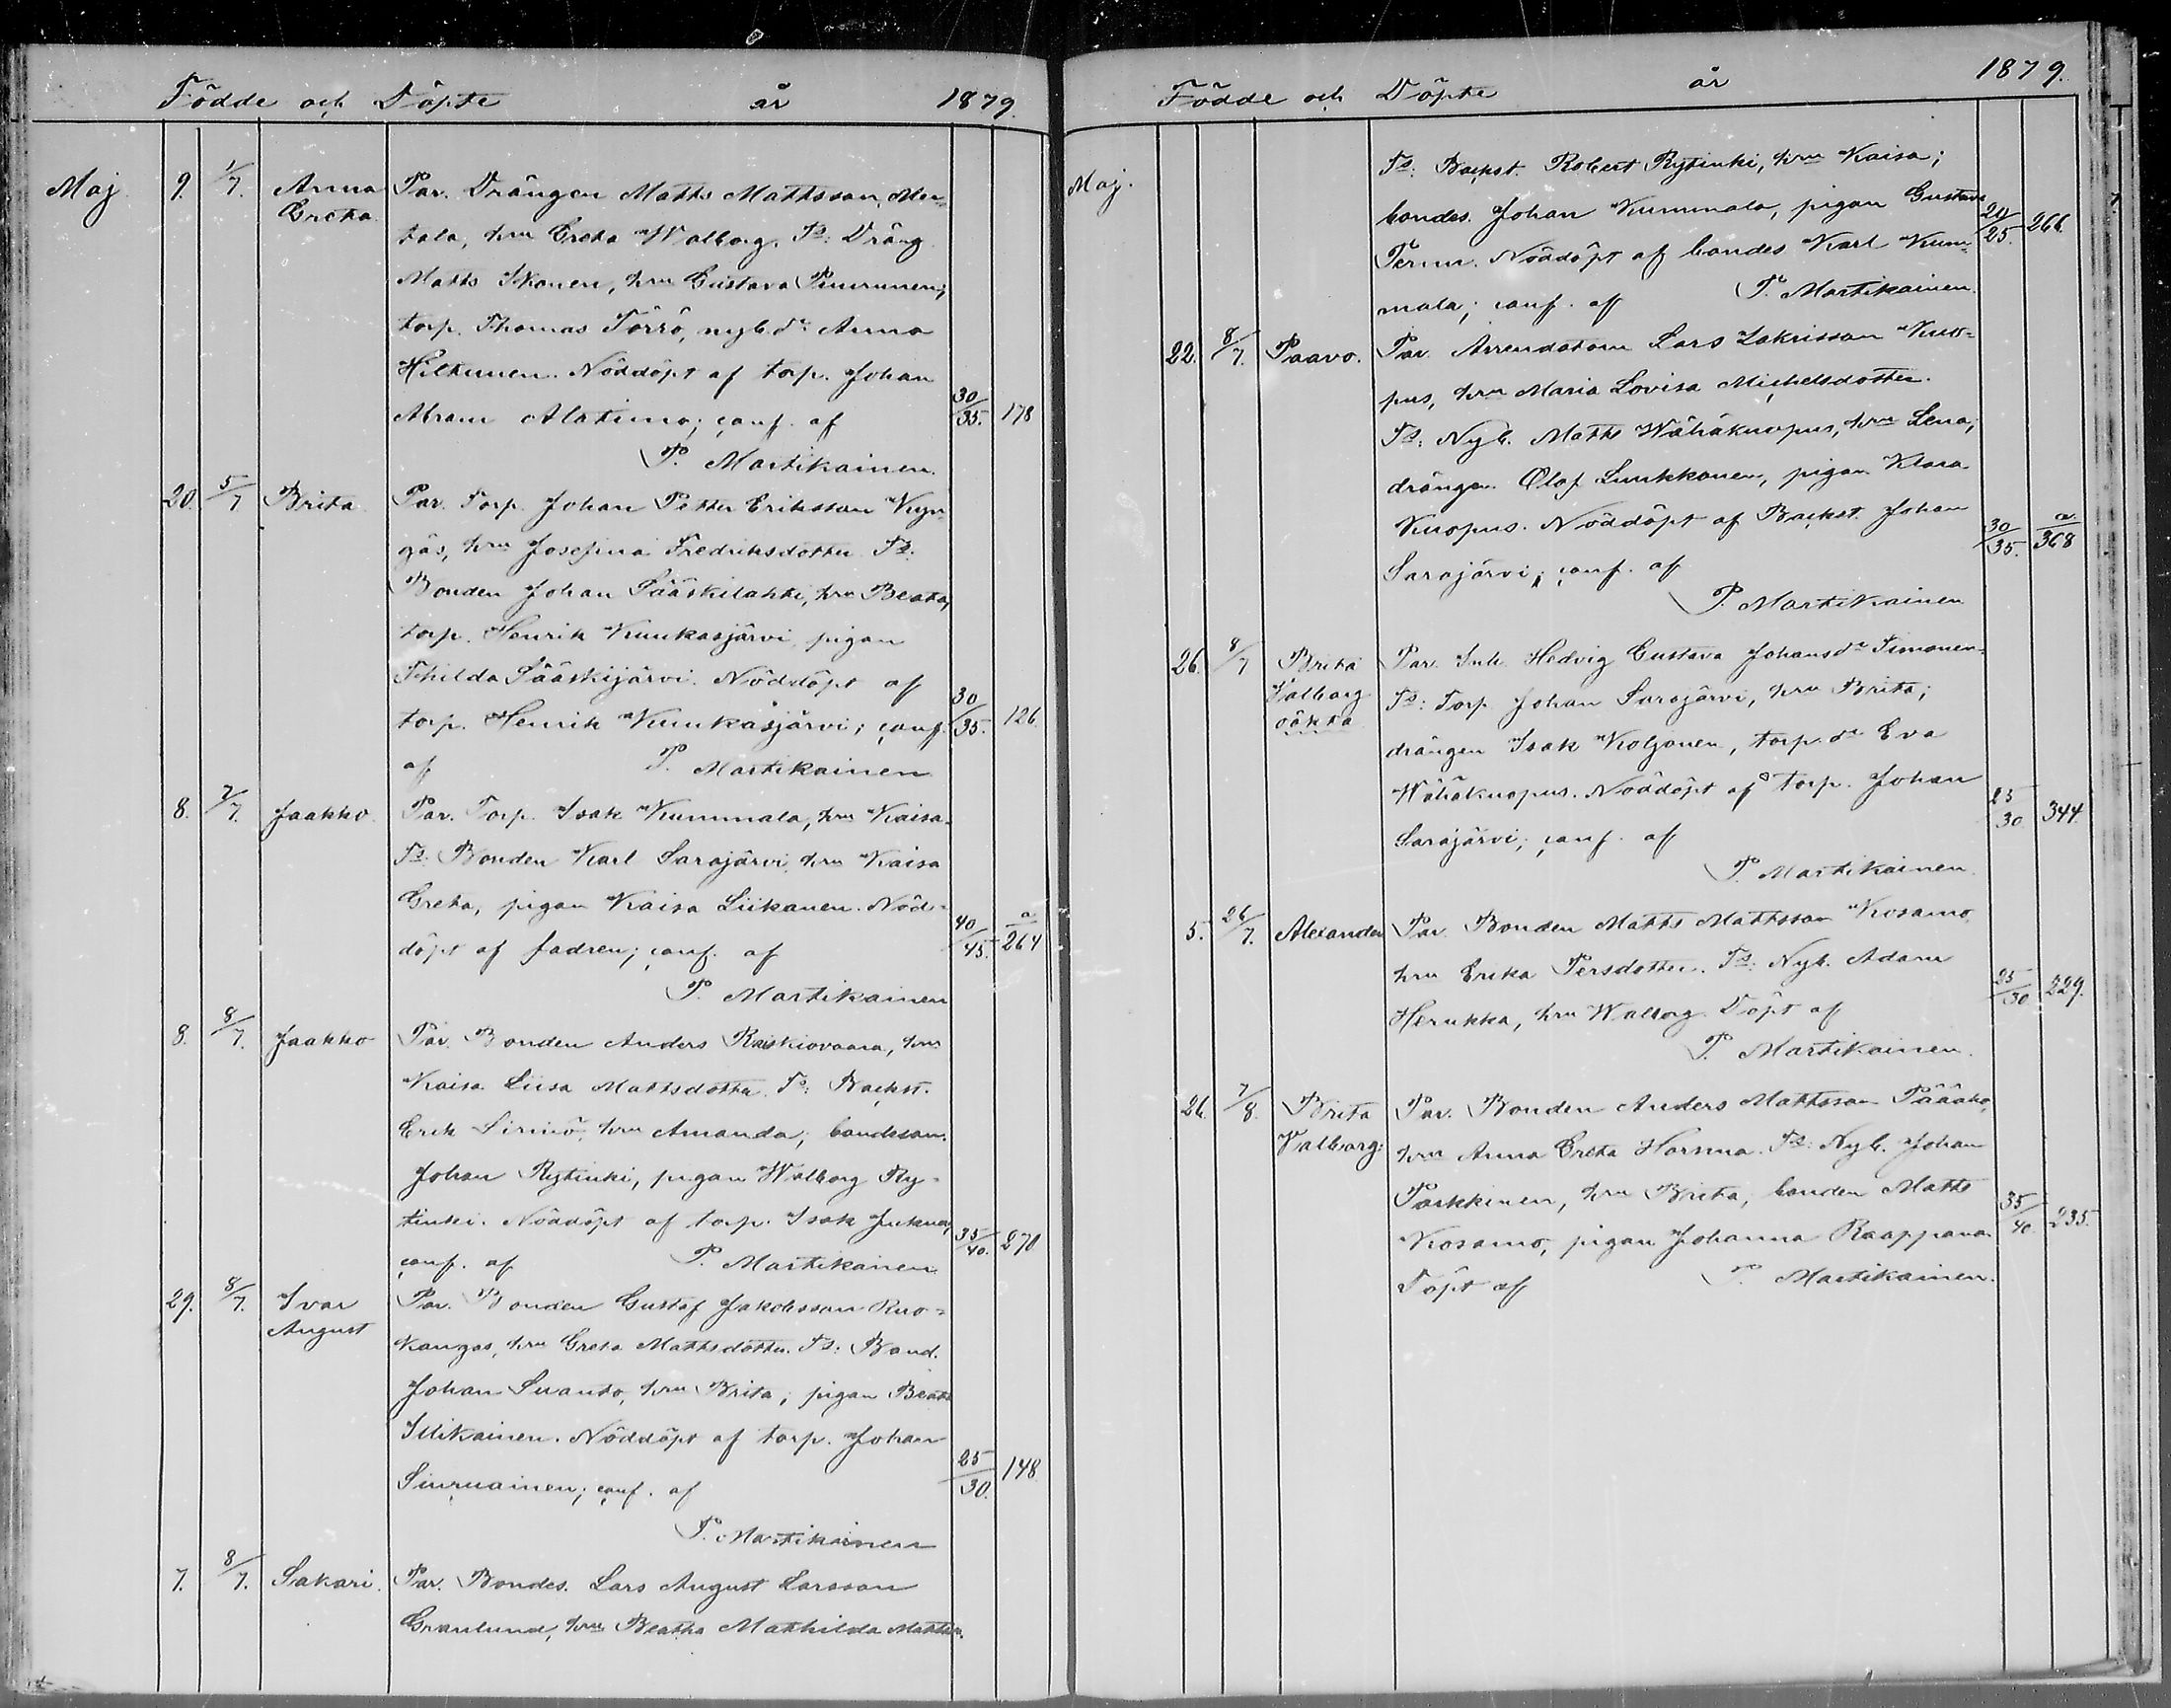 Födde och Döpte år 1879.
Maj 9. 1/7. Anna Greta Par. Drängen Matts Mattsson Men-
tala, hru Greta Walborg. Fs: Dräng
Matts Ikonen, hru Gustava Puurunen;
torp. Thomas Törrö, nyb.dr Anna
Hiltunen. Nöddöpt af torp. Johan
Abram Alatimo; conf. af 30/35. 178
P. Martikainen.
20. 5/7 Brita Par. Torp. Johan Petter Eriksson Kyn-
gäs, hru Josefina Fredriksdotter. Fs.
Bonden Johan Sääskilahti, hru Beata,
torp. Henrik Kuukasjärvi, pigan
Thilda Sääskijärvi. Nöddöpt af
torp. Henrik Kuukasjärvi; conf. 30/35. 126
af P. Martikainen
8. 7/7. Jaakko Par. Torp. Isak Kummala, hru Kaisa.
Fs. Bonden Karl Sarajärvi, hru Kaisa
Greta, pigan Kaisa Liikanen. Nöd-
döpt af fadren; conf. af 40/45. a/264
P. Martikainen
8. 8/7. Jaakko Par. Bonden Anders Raiskiovaara, hru
Kaisa Liisa Mattsdotter. Fs: Backst.
Erik Sirniö, hru Amanda; bondeson.
Johan Rytinki, pigan Walborg Ry-
tinki. Nöddöpt af torp. Isak
conf. af P. Martikainen 35/40. 270
29. 8/7. Ivar August Par. Bonden Gustaf Jakobsson Ruo-
kangas, hru Greta Mattsdotter. Fs: Bond.
Johan Suanto, hru Brita; pigan Beata
Illikainen. Nöddöpt af torp. Johan
Siuruainen; conf. af 25/30. 148
P. Martikainen
7. 8/7. Sakari. Par. Bondes. Lars August Larsson
Granlund, hru Beatha Mathilda Mattsdr.
Födde och Döpte år 1879.
Maj. Fs: Backst. Robert Rytinki, hru Kaisa;
bondes. Johan Kummala, pigan Gustava 20/25. 266
Nöddöpt af bondes Karl Kum-
mala; conf. af P. Martikainen.
22. 8/7. Paavo. Par. Arrendatorn Lars Zakrisson Kuo-
pus, hru Maria Lovisa Michelsdotter.
Fs: Nyb. Matts Wähäkuopus, hru Lena;
drängen Olof Luukkonen, pigan Klara
Kuopus. Nöddöpt af Backst. Johan 30/35. a/368
Sarajärvi; conf. af
P. Martikainen
26. 8/7 Brita Valborg oäkta Par. Inh. Hedvig Gustava Johansdr Simonen.
Fs: Torp. Johan Sarajärvi, hru Brita;
drängen Isak Koljonen, torp.dr Eva
Wähäkuopus. Nöddöpt af torp. Johan
Sarajärvi; conf. af 25/30. 344.
P. Martikainen.
5. 26/7. Alexander Par. Bonden Matts Mattsson Kosamo,
hru Erika Persdotter. Fs: Nyb. Adam
Herukka, hru Walborg. Döpt af 25/30 229.
P. Martikainen.
26. 7/8. Brita Valborg. Par. Bonden Anders Mattsson Pääaho,
hru Anna Greta Harma. Fs: Nyb. Johan
Parkkinen, hru Brita, bonden Matts
Kosamo, pigan Johanna Raappana. 35/40. 235.
Döpt af P. Martikainen.